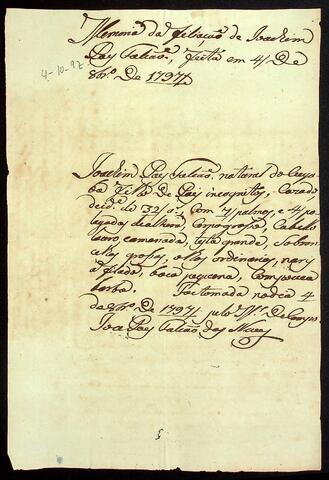 Memoria da filiação de Joachim
Paes Falcão, feita em 4 de
8br.º de 1797
4-10-97
Joachim Paes Falcão, natural do Cuya
ba filho de Pays incognitos, Cazado
de id.e de 32 an.s, com 7 palmos, e 4 po
legadas de altura, Corpo groço, Cabelo
louro, testa grande, Sobran
celhas groças, olhos ordinarios, nariz
afilado, boca piquena, Com pouca
barba. Foi tomada no dia 4
de 8br.º de 1797 pelo
Joa Paes Falcão das Neves